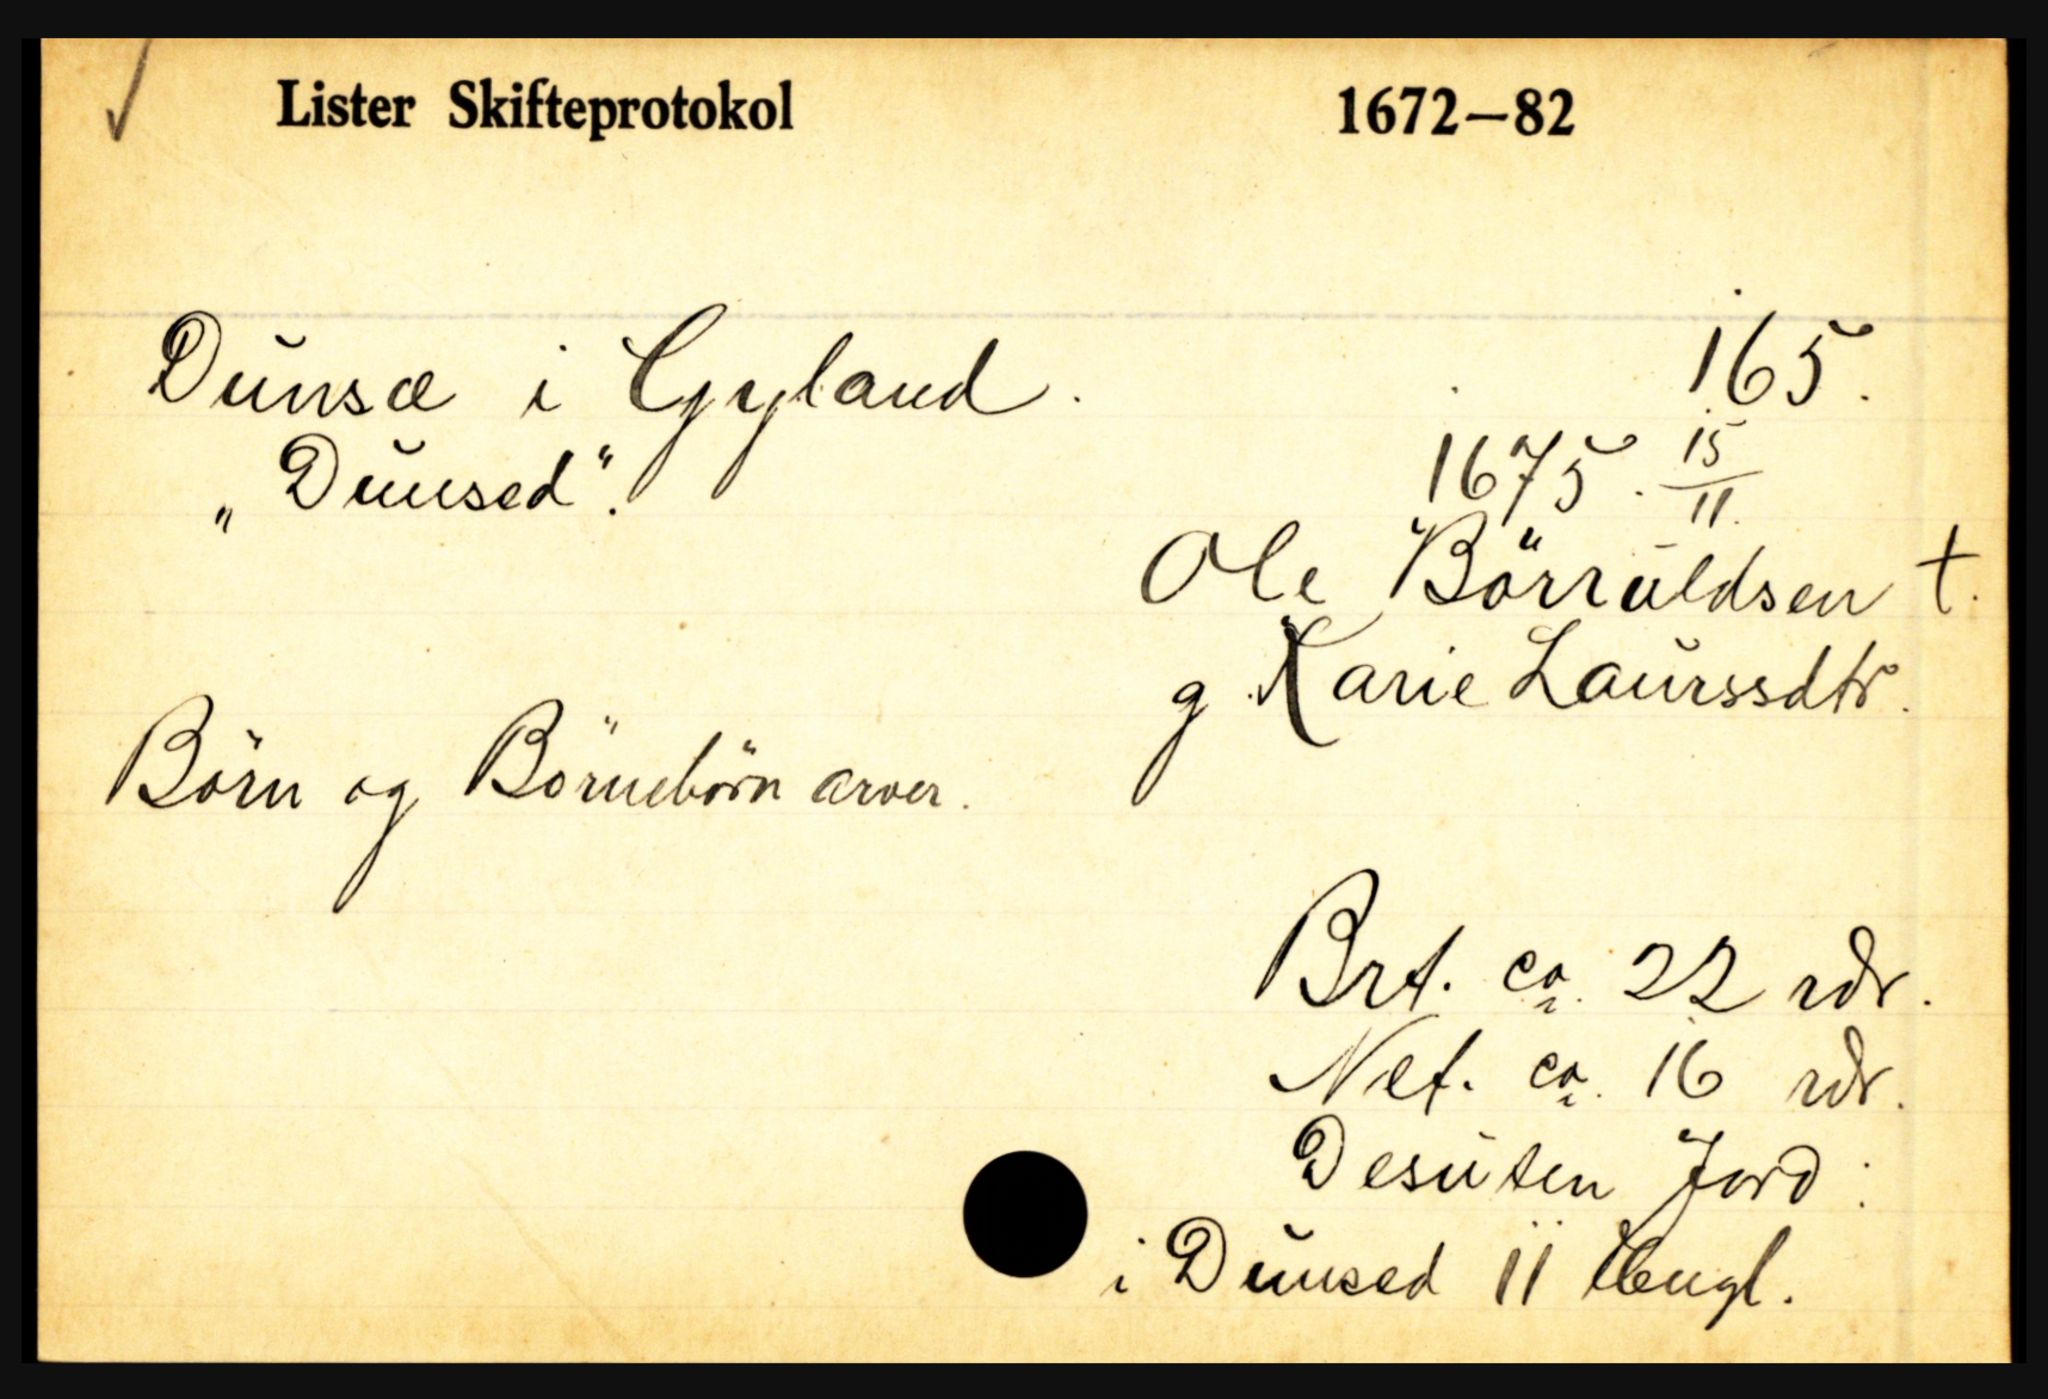 Lister Skifteprotokol 1672–82
Dunsæ i Gyland. 165.
„Dunsed“. 1675. 15/11.
Ole Börruldsen †.
g. Karie Laurssdtr.
Börn og Börnebörn arver.
Brt. ca. 22 rdr.
Net. ca. 16 rdr.
Desuten Jord:
i Dunsed 11 Engl.